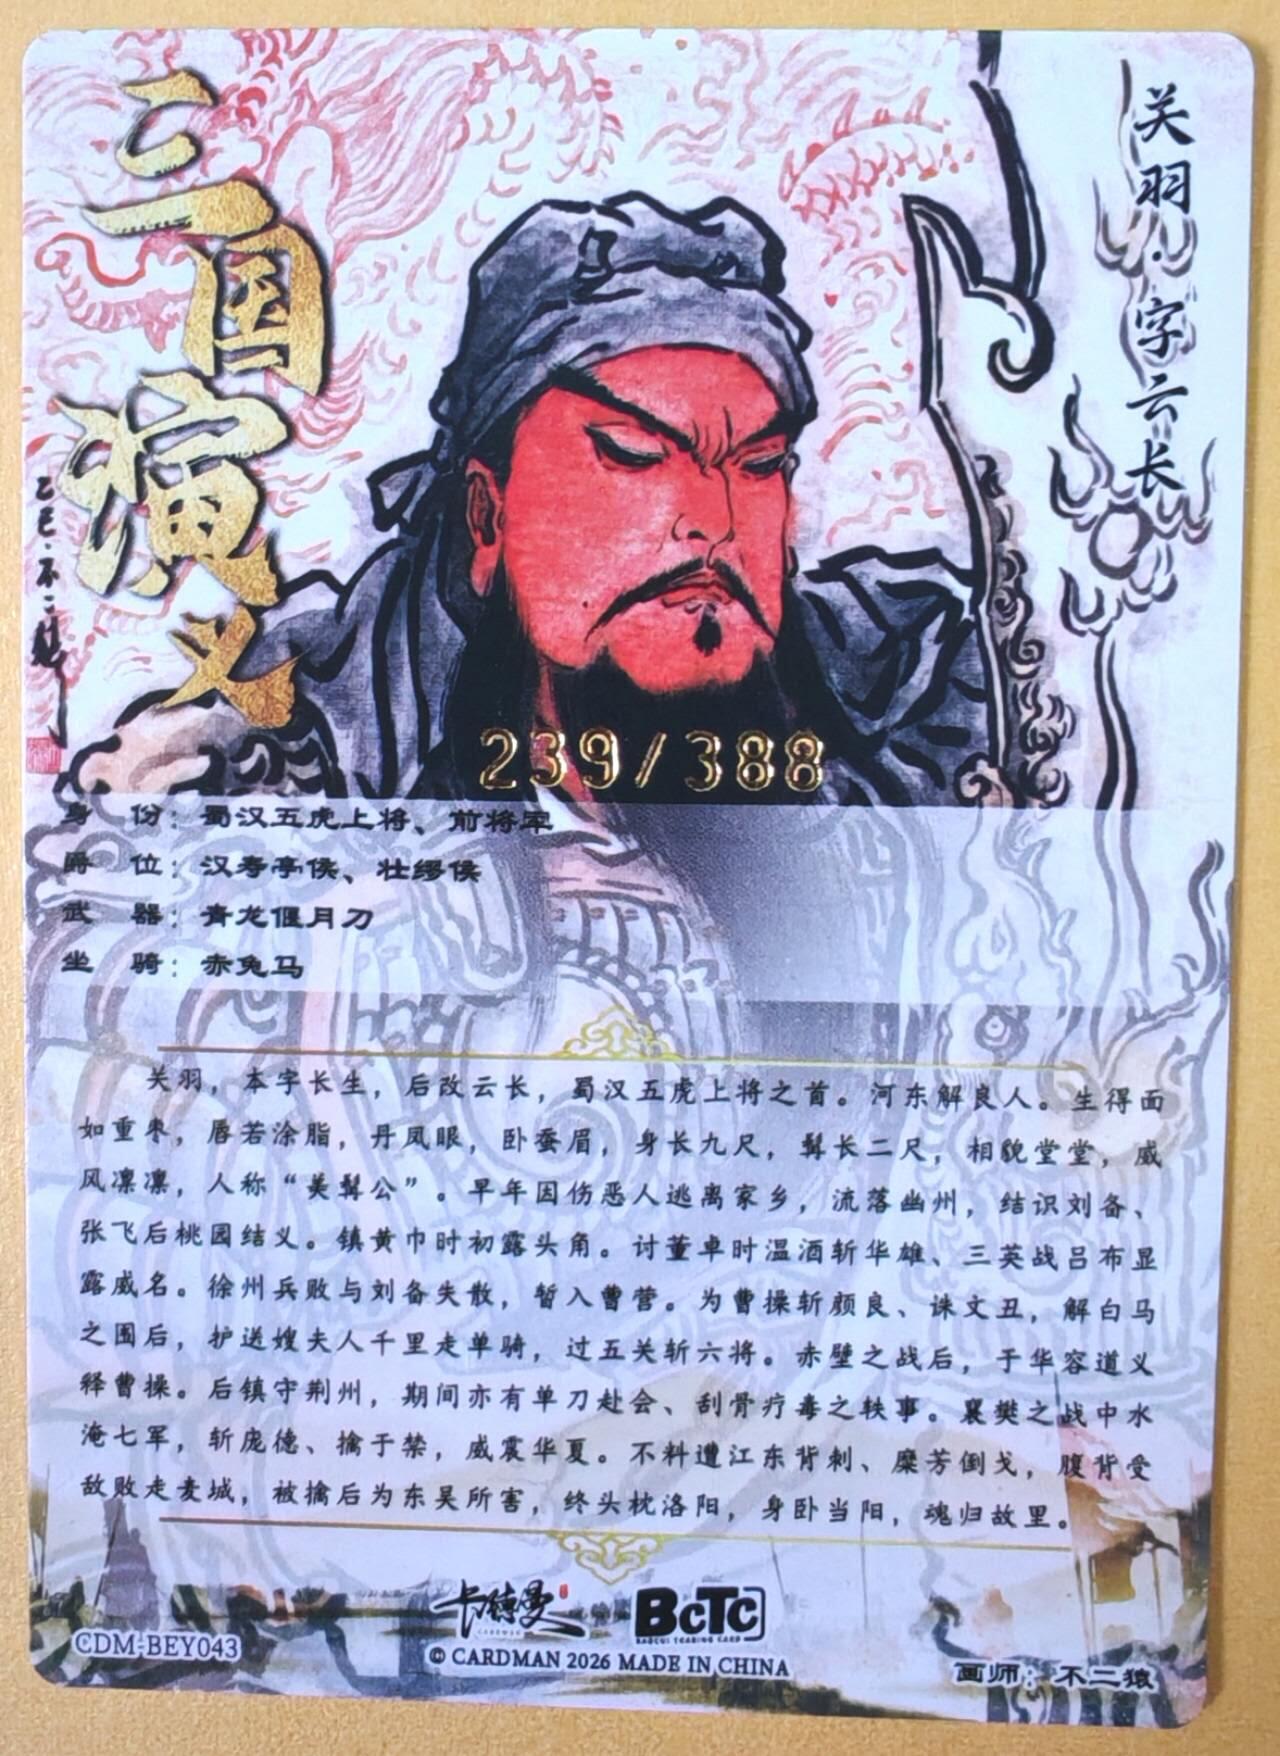 三国演义
乙巳·不二猿
关羽·字云长
239/388
身份：蜀汉五虎上将、前将军
爵位：汉寿亭侯、壮缪侯
武器：青龙偃月刀
坐骑：赤兔马
关羽，本字长生，后改云长，蜀汉五虎上将之首。河东解良人。生得面
如重枣，唇若涂脂，丹凤眼，卧蚕眉，身长九尺，髯长二尺，相貌堂堂，威
风凛凛，人称“美髯公”。早年因伤恶人逃离家乡，流落幽州，结识刘备、
张飞后桃园结义。镇黄巾时初露头角。讨董卓时温酒斩华雄、三英战吕布显
露威名。徐州兵败与刘备失散，暂入曹营。为曹操斩颜良、诛文丑，解白马
之围后，护送嫂夫人千里走单骑，过五关斩六将。赤壁之战后，于华容道义
释曹操。后镇守荆州，期间亦有单刀赴会、刮骨疗毒之轶事。襄樊之战中水
淹七军，斩庞德、擒于禁，威震华夏。不料遭江东背刺、糜芳倒戈，腹背受
敌败走麦城，被擒后为东吴所害，终头枕洛阳，身卧当阳，魂归故里。
卡德曼
CARDMAN
BCTC
BAOCUI TRADING CARD
CDM-BEY043
© CARDMAN 2026 MADE IN CHINA
画师：不二猿